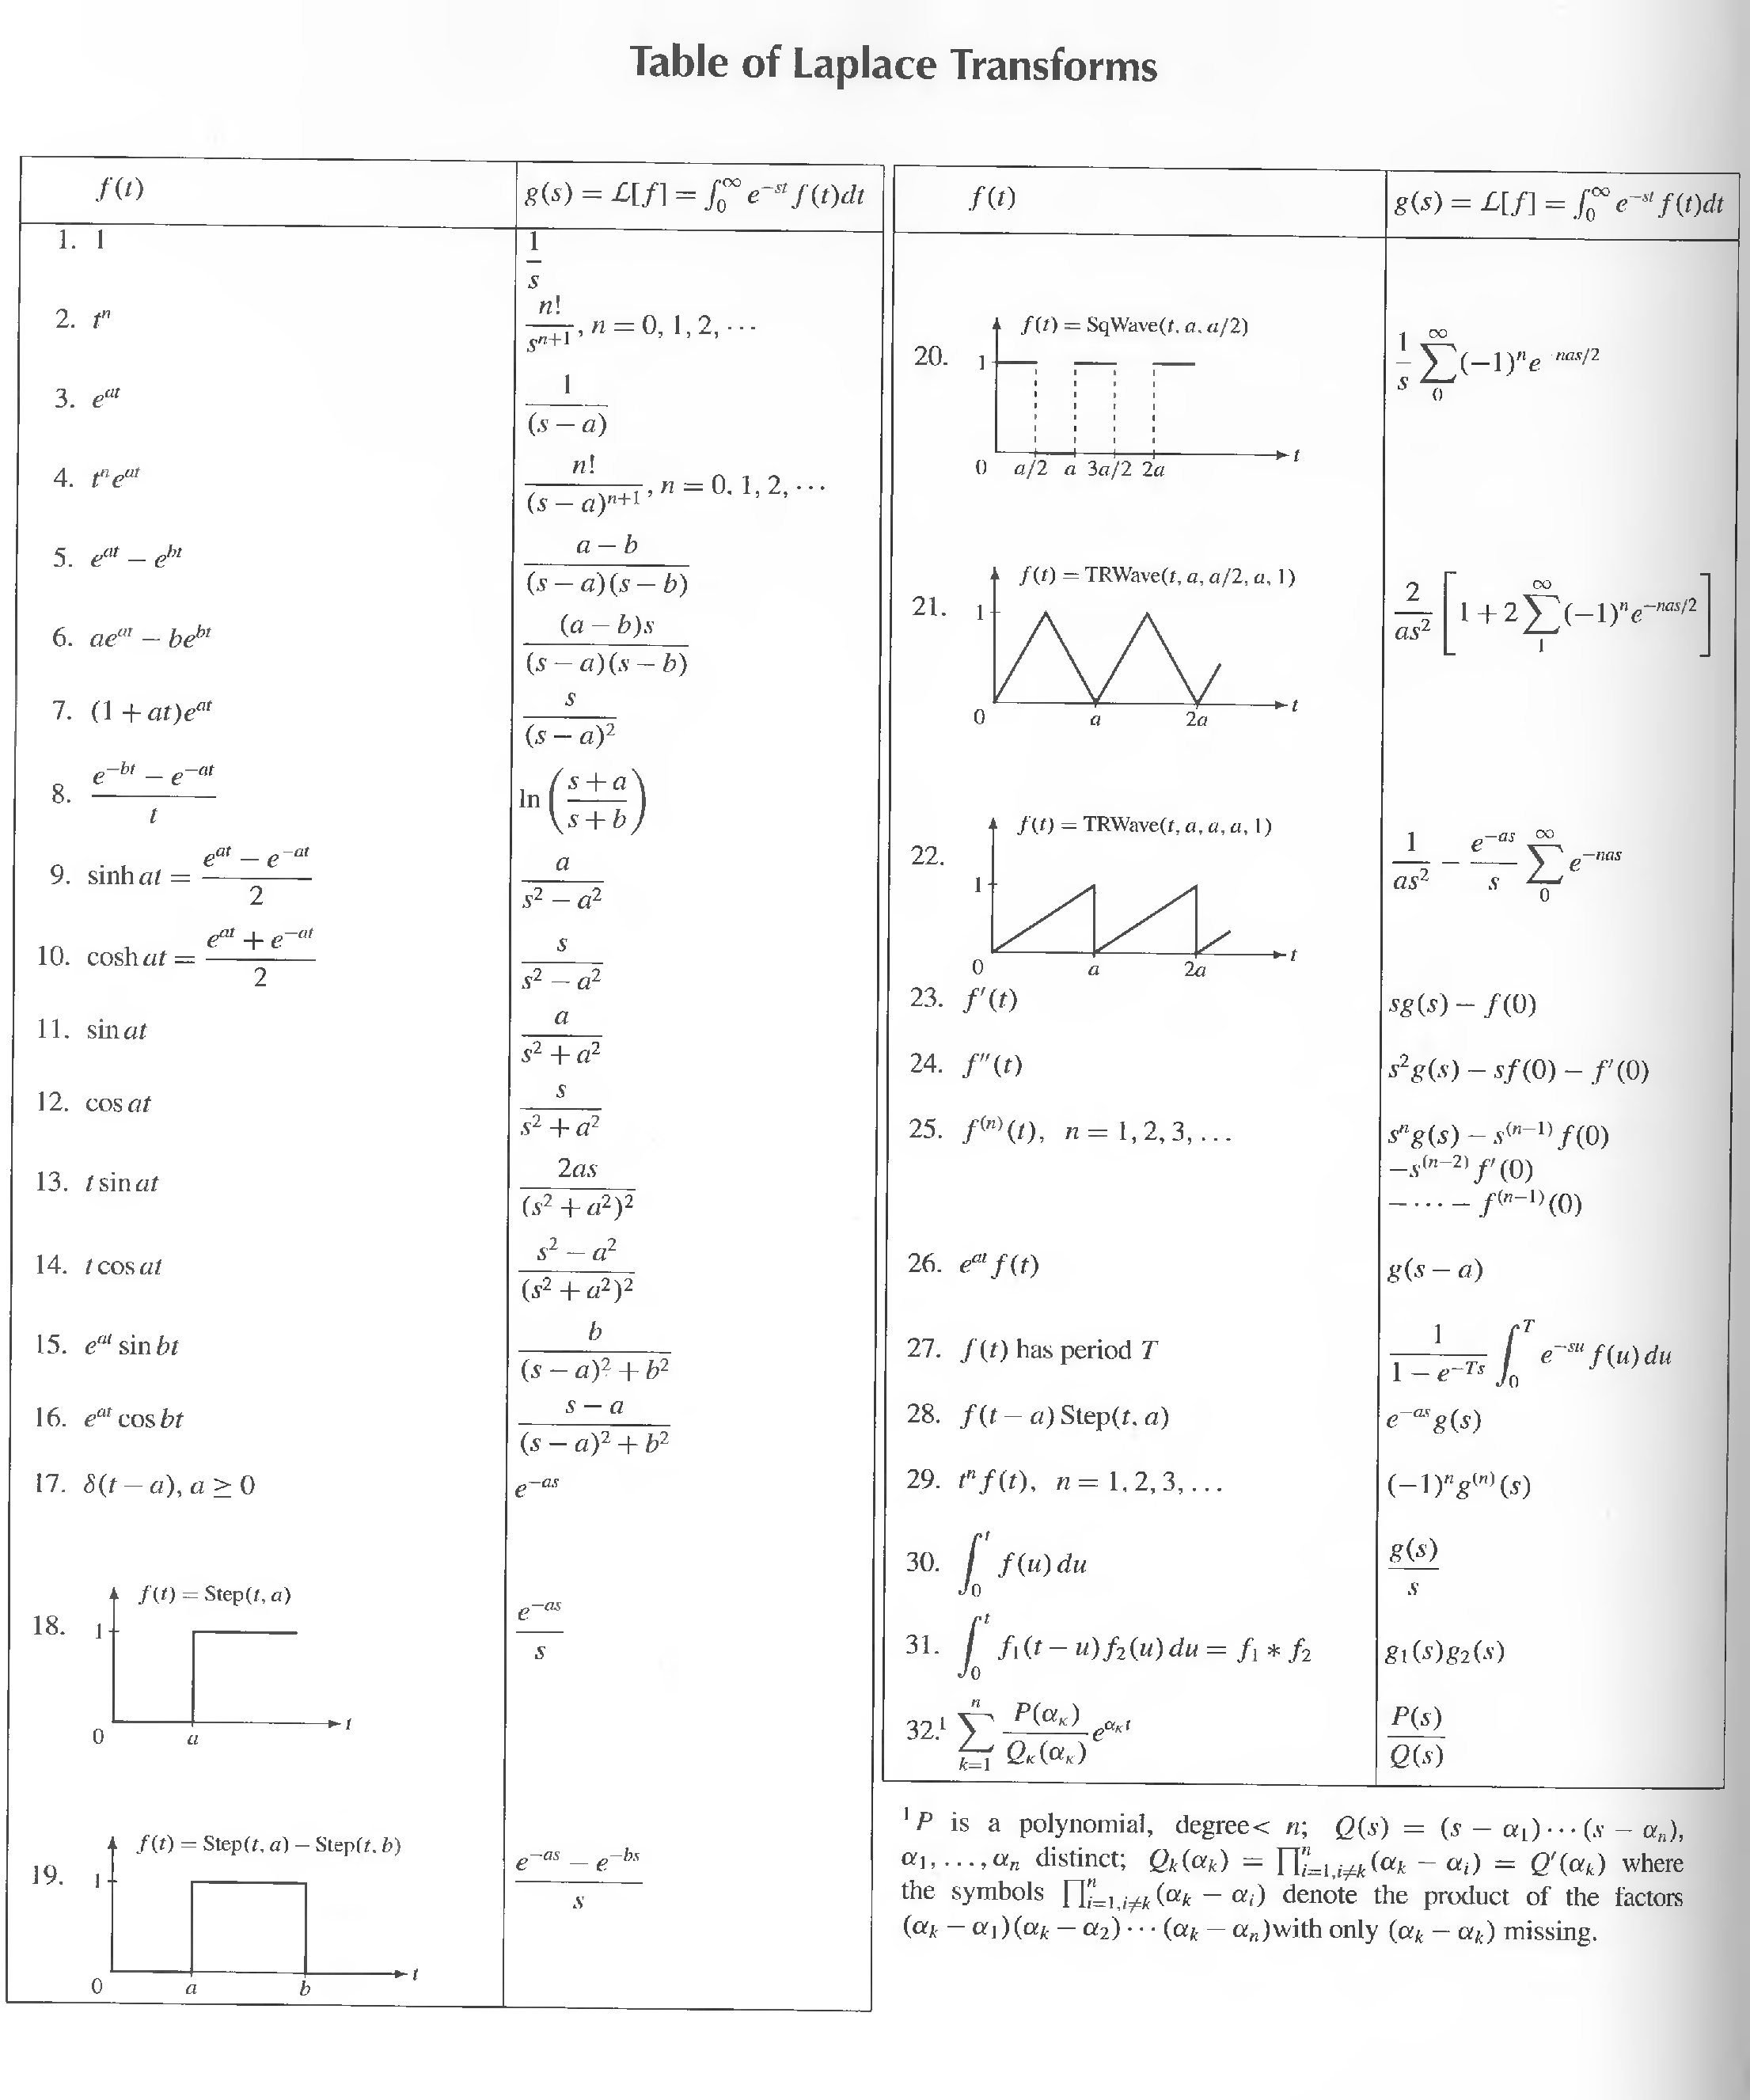 Table of Laplace Transforms
f(t)
g(s) = ℒ[f] = ∫₀^∞ e^{−st} f(t)dt
1. 1
1/s
2. tⁿ
n!/s^{n+1}, n = 0, 1, 2, ···
3. e^{at}
1/(s − a)
4. tⁿe^{at}
n!/(s − a)^{n+1}, n = 0, 1, 2, ···
5. e^{at} − e^{bt}
(a − b)/((s − a)(s − b))
6. ae^{at} − be^{bt}
(a − b)s/((s − a)(s − b))
7. (1 + at)e^{at}
s/(s − a)²
8. (e^{−bt} − e^{−at})/t
ln((s + a)/(s + b))
9. sinh at = (e^{at} − e^{−at})/2
a/(s² − a²)
10. cosh at = (e^{at} + e^{−at})/2
s/(s² − a²)
11. sin at
a/(s² + a²)
12. cos at
s/(s² + a²)
13. t sin at
2as/(s² + a²)²
14. t cos at
(s² − a²)/(s² + a²)²
15. e^{at} sin bt
b/((s − a)² + b²)
16. e^{at} cos bt
(s − a)/((s − a)² + b²)
17. δ(t − a), a ≥ 0
e^{−as}
18.
f(t) = Step(t, a)
1
0 a t
e^{−as}/s
19.
f(t) = Step(t, a) − Step(t, b)
1
0 a b t
(e^{−as} − e^{−bs})/s
f(t)
g(s) = ℒ[f] = ∫₀^∞ e^{−st} f(t)dt
20.
f(t) = SqWave(t, a, a/2)
1
0 a/2 a 3a/2 2a t
1/s ∑₀^∞ (−1)ⁿ e^{nas/2}
21.
f(t) = TRWave(t, a, a/2, a, 1)
1
0 a 2a t
2/(as²) [1 + 2 ∑₁^∞ (−1)ⁿ e^{−nas/2}]
22.
f(t) = TRWave(t, a, a, a, 1)
1
0 a 2a t
1/(as²) − e^{−as}/s ∑₀^∞ e^{−nas}
23. f′(t)
sg(s) − f(0)
24. f″(t)
s²g(s) − sf(0) − f′(0)
25. f^{(n)}(t), n = 1, 2, 3, ...
sⁿg(s) − s^{(n−1)} f(0)
−s^{(n−2)} f′(0)
− ··· − f^{(n−1)}(0)
26. e^{at} f(t)
g(s − a)
27. f(t) has period T
1/(1 − e^{−Ts}) ∫₀^T e^{−su} f(u) du
28. f(t − a) Step(t, a)
e^{−as}g(s)
29. tⁿ f(t), n = 1, 2, 3, ...
(−1)ⁿg^{(n)}(s)
30. ∫₀^t f(u) du
g(s)/s
31. ∫₀^t f₁(t − u) f₂(u) du = f₁ * f₂
g₁(s)g₂(s)
32.¹ ∑_{k=1}^n P(α_κ)/Q_κ(α_κ) e^{α_κ t}
P(s)/Q(s)
¹P is a polynomial, degree< n; Q(s) = (s − α₁)···(s − αₙ),
α₁, ..., αₙ distinct; Q_k(α_k) = ∏_{i=1,i≠k}^n (α_k − α_i) = Q′(α_k) where
the symbols ∏_{i=1,i≠k}^n (α_k − α_i) denote the product of the factors
(α_k − α₁)(α_k − α₂)···(α_k − αₙ)with only (α_k − α_k) missing.